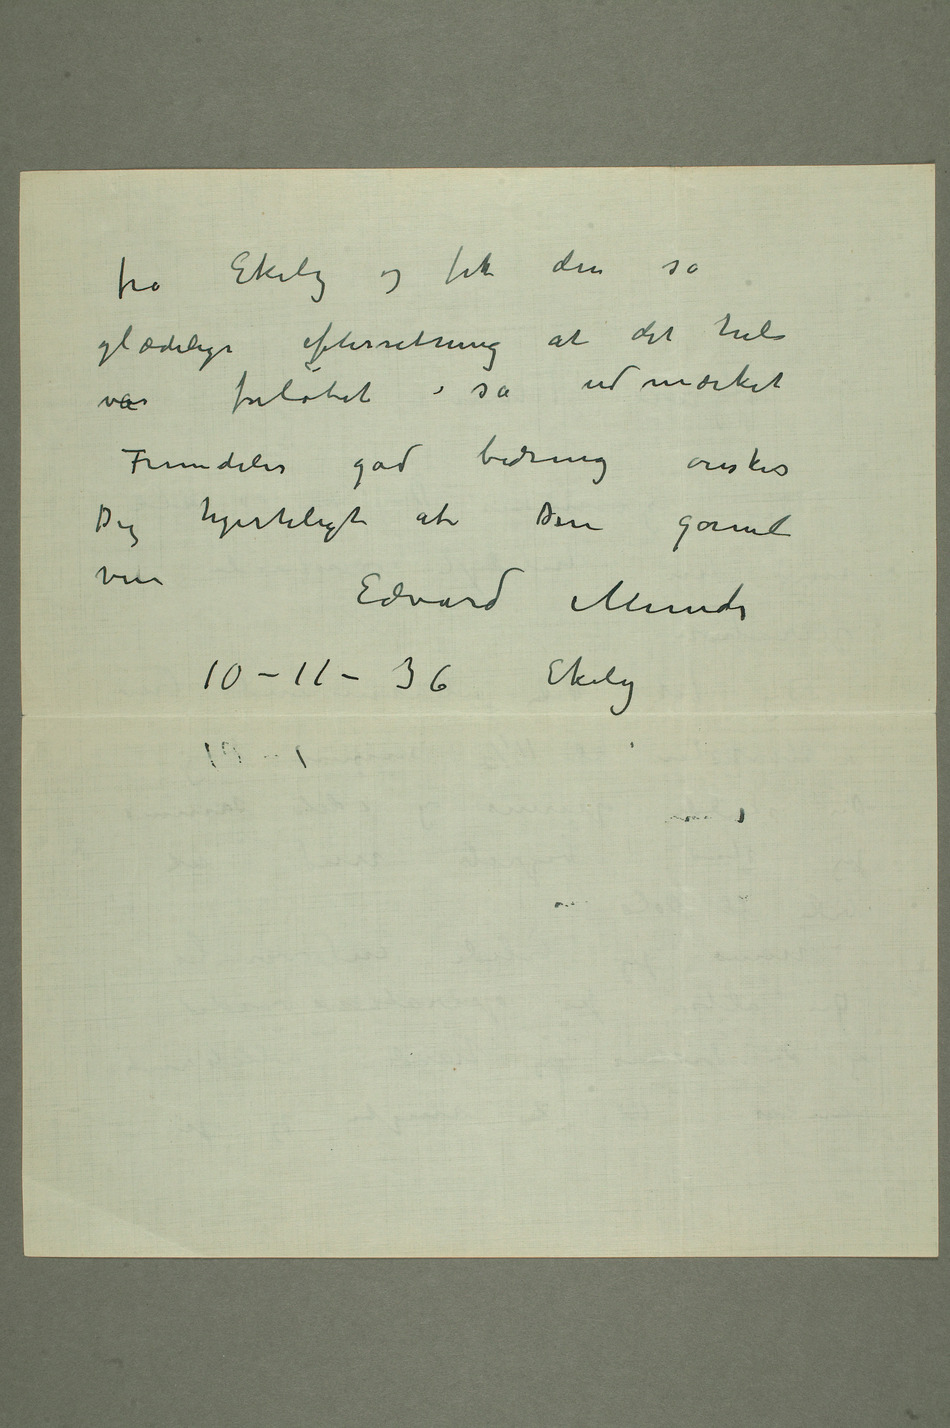 fra Ekely og fik den så
glædelige efterretning at det hele
var forløbet så udmærket
Fremdeles god bedring ønskes
Dig hjerteligt af Din gamle
ven
Edvard Munch
10–11–36 Ekely